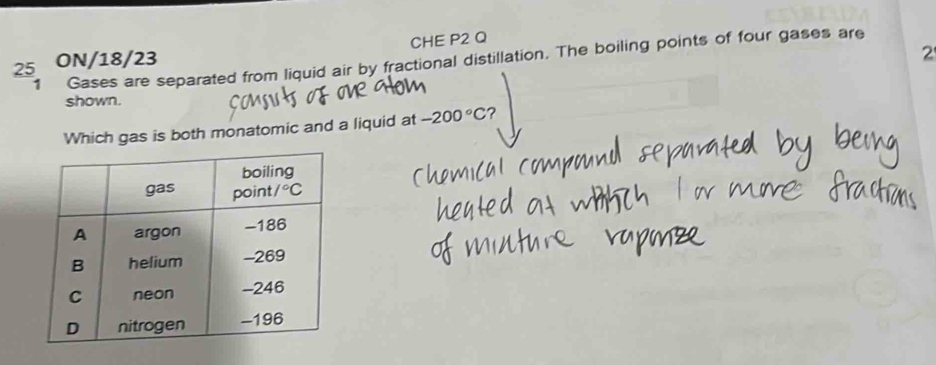 CHE P2 Q
25 ON/18/23
2
1 Gases are separated from liquid air by fractional distillation. The boiling points of four gases are
shown.
consists of one atom
Which gas is both monatomic and a liquid at –200 °C?
gas boiling point/°C
A argon –186
B helium –269
C neon –246
D nitrogen –196
chemical compound separated by being
heated at which 1 or more fractions
of mixture